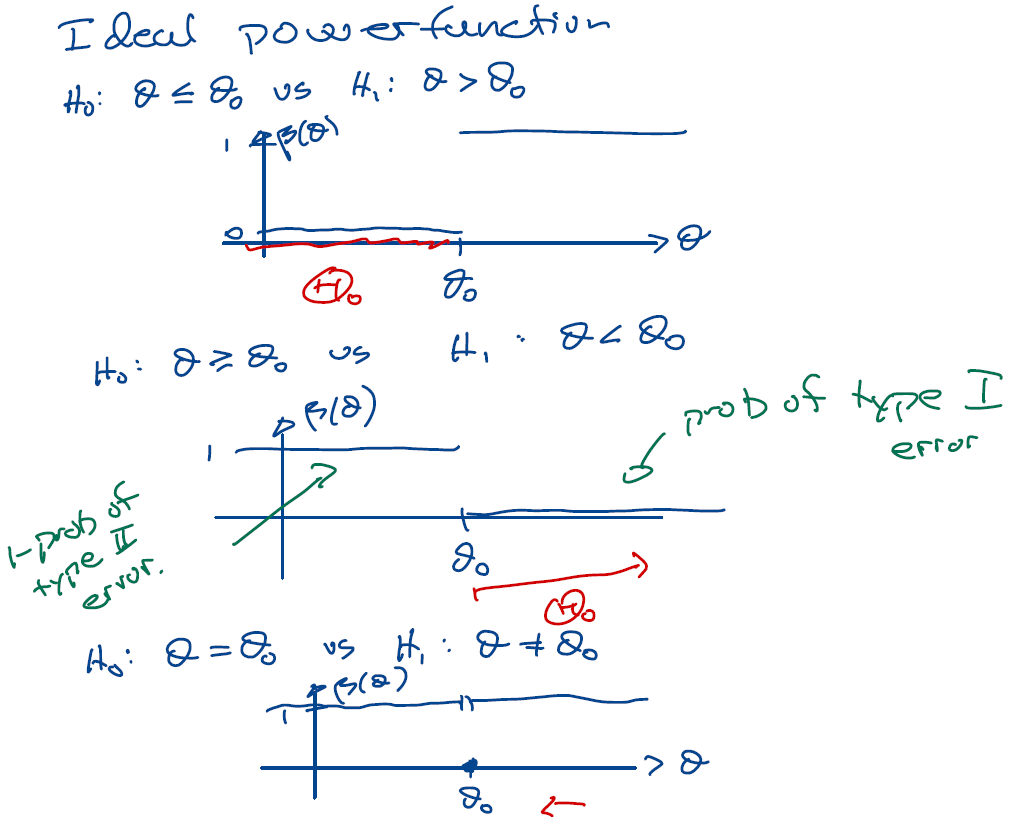 Ideal power function
H₀: θ ≤ θ₀ vs H₁: θ > θ₀
1 β(θ)
0 θ
Θ₀ θ₀
H₀: θ ≥ θ₀ vs H₁: θ < θ₀
β(θ)
prob of type I
error
1
1-prob of
type II
error.
θ₀
Θ₀
H₀: θ = θ₀ vs H₁: θ ≠ θ₀
β(θ)
1
θ
θ₀